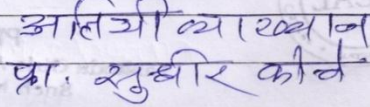 अतिथी व्याख्यान
प्रा. सुधीर कोचे